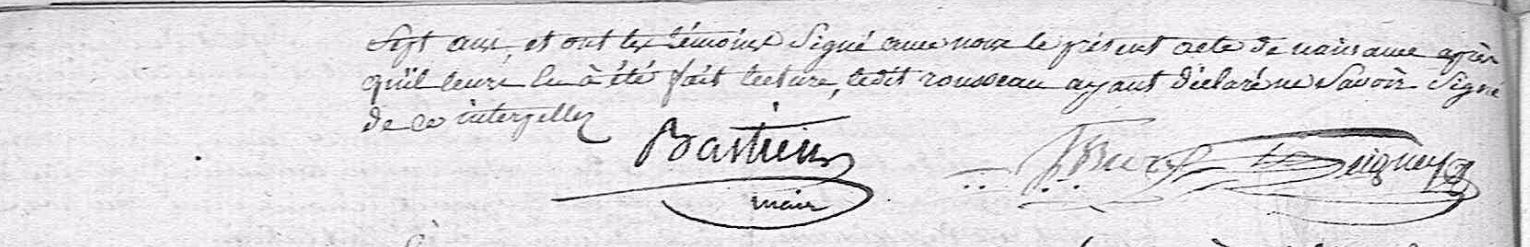 Sept ans, et ont les témoins Signé avec nous le présent acte de naissance après
qu'il leur, en à été fait lecture, ledit rousseau ayant déclaré ne Savoir Signé
de ce interpellez
Bastien
maire